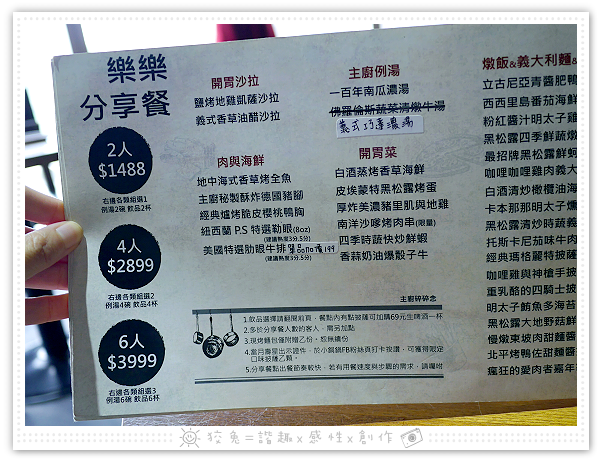 樂樂
分享餐
2人
$1488
右邊各類組選1
例湯2碗 飲品2杯
4人
$2899
右邊各類組選2
例湯4碗 飲品4杯
6人
$3999
右邊各類組選3
例湯6碗 飲品6杯
開胃沙拉
鹽烤地雞凱薩沙拉
義式香草油醋沙拉
主廚例湯
一百年南瓜濃湯
佛羅倫斯蔬菜清燉牛湯
義式巧達濃湯
肉與海鮮
地中海式香草烤全魚
主廚秘製酥炸德國豬腳
經典爐烤脆皮櫻桃鴨胸
紐西蘭 P.S 特選勒眼(8oz)
(建議熟度3分.5分)
美國特選肋眼牛排單品加價199
(建議熟度3分.5分)
開胃菜
白酒蒸烤香草海鮮
皮埃蒙特黑松露烤蛋
厚炸美濃豬里肌與地雞
南洋沙嗲烤肉串(限量)
四季時蔬快炒鮮蝦
香蒜奶油爆骰子牛
燉飯&義大利麵&
立古尼亞青醬肥鴨
西西里島番茄海鮮
粉紅醬汁明太子雞
黑松露四季鮮蔬燉
最招牌黑松露鮮蚵
咖哩咖哩雞肉義大
白酒清炒橄欖油海
卡本那那明太子燉
黑松露清炒時蔬義
托斯卡尼茄味牛肉
經典瑪格麗特披薩
咖哩雞與神槍手披
重乳酪的四騎士
明太子鮪魚多海苔
黑松露大地野菇鮮
慢燉東坡肉甜醬薑
北平烤鴨佐甜醬薑
瘋狂的愛肉者嘉年
主廚碎碎念
1.飲品選擇請翻閱前頁，餐點內有點披薩可加購69元生啤酒一杯
2.多於分享餐人數的客人，需另加點
3.現烤麵包僅附贈乙份，恕無續份
4.當月壽星出示證件，於小銅鍋FB粉絲頁打卡按讚，可獲得限定
口味披薩乙顆。
5.分享餐點出餐節奏較快，若有用餐速度與步驟的需求，請囑咐
狡兔=諧趣x感性x創作